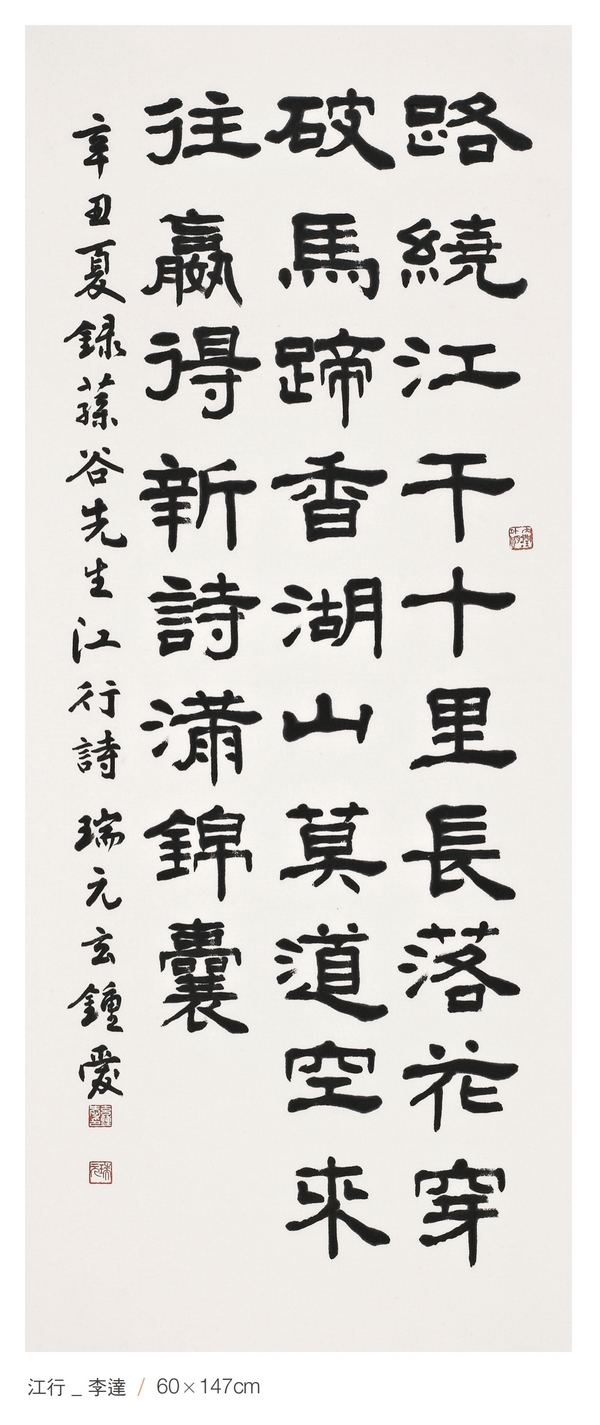 路繞江干十里長落花穿
破馬蹄香湖山莫道空來
往嬴得新詩滿錦囊
辛丑夏錄蓀谷先生江行詩 瑞元玄鍾愛
江行 _ 李達 / 60×147cm